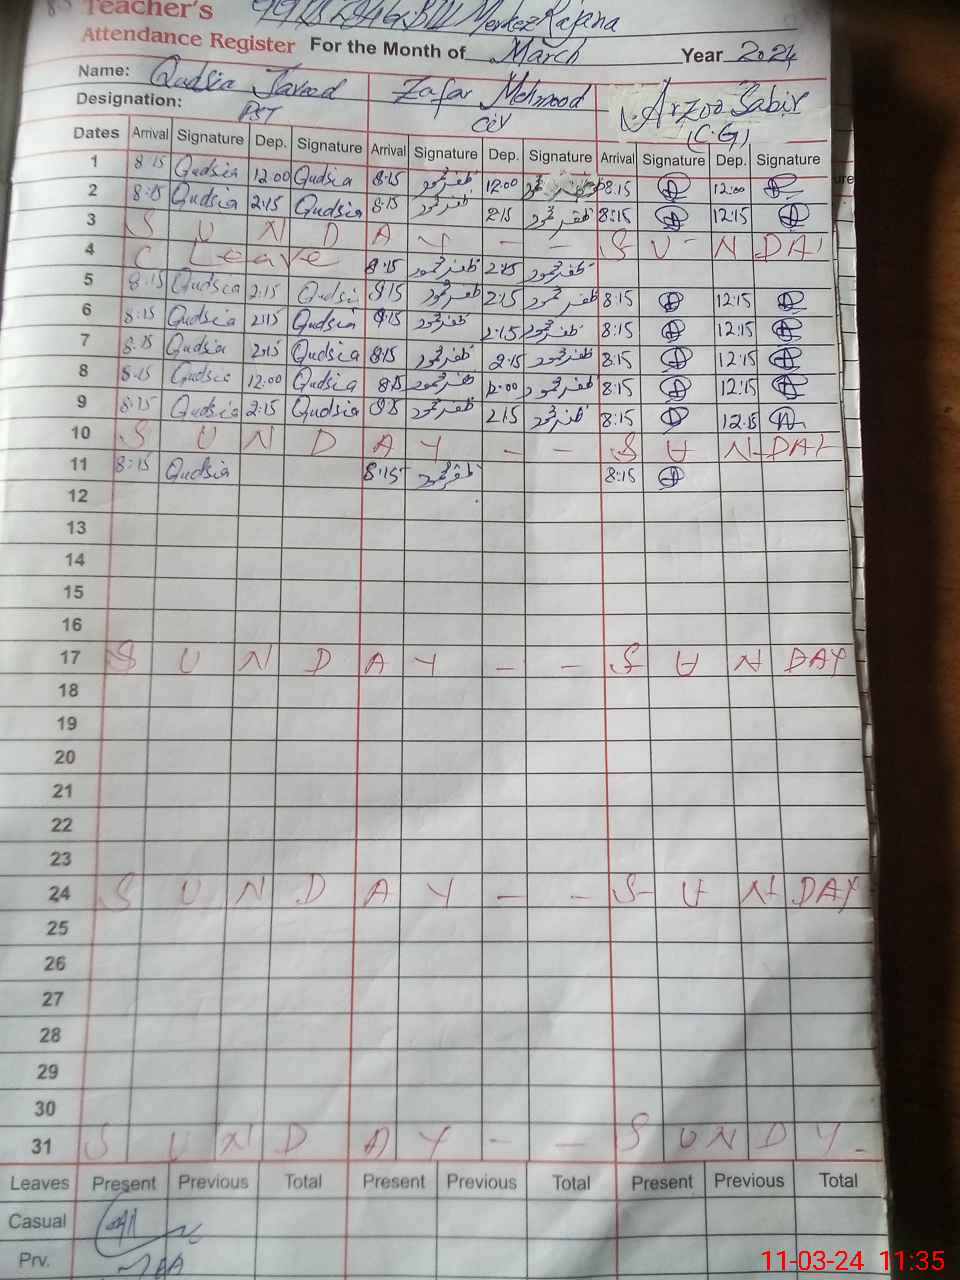 Teacher's Merkez Rajana
Attendance Register For the Month of March Year 2024
Name: Qudsia Javed Zafar Mehmood Arzoo Sabir
Designation: PST (C.G)
Dates Arrival Signature Dep. Signature Arrival Signature Dep. Signature Arrival Signature Dep. Signature
1 8:15 Qudsia 12:00 Qudsia 8:15 ظفر محمود 12:00 ظفر محمود 8:15 12:00
2 8:15 Qudsia 2:15 Qudsia 8:15 ظفر محمود 2:15 ظفر محمود 8:15 12:15
3 S U N D A Y - - S U N DAY
4 C Leave 8:15 ظفر محمود 2:15 ظفر محمود
5 8:15 Qudsia 2:15 Qudsia 8:15 ظفر محمود 2:15 ظفر محمود 8:15 12:15
6 8:15 Qudsia 2:15 Qudsia 8:15 ظفر محمود 2:15 ظفر محمود 8:15 12:15
7 8:15 Qudsia 2:15 Qudsia 8:15 ظفر محمود 2:15 ظفر محمود 8:15 12:15
8 8:15 Qudsia 12:00 Qudsia 8:15 ظفر محمود 12:00 ظفر محمود 8:15 12:15
9 8:15 Qudsia 2:15 Qudsia 8:15 ظفر محمود 2:15 ظفر محمود 8:15 12:15
10 S U N D A Y - - S U N DAY
11 8:15 Qudsia 8:15 ظفر محمود 8:15
12
13
14
15
16
17 S U N D A Y - - S U N DAY
18
19
20
21
22
23
24 S U N D A Y - - S U N DAY
25
26
27
28
29
30
31 S U N D A Y - - S U N D Y -
Leaves Present Previous Total Present Previous Total Present Previous Total
Casual
Prv.
11-03-24 11:35